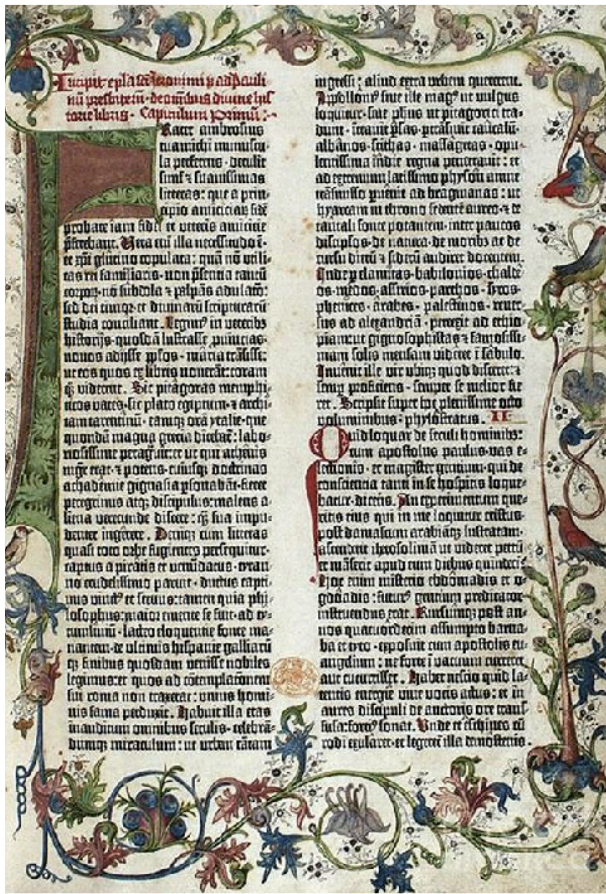 Incipit epistola sancti iheronimi ad pauli-
num presbiterum de omnibus divine his-
torie libris. Capitulum primum.
Frater ambrosius
tua michi munuscu-
la perferens. detulit
simul et suavissimas
litteras: que a prin-
cipio amiciciarum fidē
probate iam fidei et veteris amicicie
preferebant. Vera enī illa necessitudo ē.
et xpī glutino copulata: quā nō utili-
tas rei familiaris. nō presentia tantū
corporum. nō subdola et palpās adulatō:
sed dei timor. et divinarū scripturarū
studia conciliant. Legim⁹ in veterib⁹
historijs. quosdā lustrasse provincias.
novos adijsse pplos. maria trāsisse:
ut eos quos ex libris noverāt: coram
qᷓ viderent. Sic pitagoras memphi-
ticos vates. sic plato egiptum. et archi-
tam tarentinū. eamqᷓ orā ytalie. que
quondā magna grecia dicebat̄: labo-
riosissime peragravit: et ut qui athenis
mgr erat. et potens. cuiusqᷓ doctrinas
achademie gignasia psonabāt. fieret
peregrinus atqᷓ discipulus: malens a-
liena verecunde discere: qᷓ sua impu-
denter ingerere. Deniqᷓ cum litteras
quasi toto orbe fugientes persequitur.
captus a piratis et venūdatus. tyran-
no crudelissimo paruit. ductus capti-
vus vinct⁹ et servus: tamen quia phi-
losophus: maior emente se fuit. ad ty-
tumlivium. lacteo eloquentie fonte ma-
nantem. de ultimis hispanie galliarū
qᷓ finibus quosdam venisse nobiles
legimus: et quos ad cōtemplationem
sui roma non traxerat: unius homi-
nis fama perduxit. Habuit illa etas
inauditum omnibus seculis. celebrā-
dumqᷓ miraculum: ut urbem tātam
ingressi: aliud extra urbem quererent.
Apollonius sive ille mag⁹ ut vulgus
loquitur. sive phūs ut pitagorici tra-
dunt. intravit psas. ptrāsivit caucasū.
albanos. scithas. massagetas. opu-
lentissima indie regna penetravit: et
ad extremum latissimo physon amne
trāsmisso puenit ad bragmanas: ut
hyarcam in throno sedentē aureo. et de
tantali fonte potantem. inter paucos
discipulos. de natura. de moribus ac de
cursu dierū et siderū audiret docentem.
Inde p elamitas. babilonios. chalde-
os. medos. assirios. parthos. syros.
phenices. arabes. palestinos. rever-
sus ad alexandriā. perrexit ad ethio-
piam: ut gignosophistas et famosissi-
mam solis mensam videret ī sabulo.
Invenit ille vir ubiqᷓ quod disceret: et
semp proficiens. semper se melior fie-
ret. Scripsit super hoc plenissime octo
voluminibus: phylostratus. II
Quid loquar de seculi hominib⁹:
cum apostolus paulus. vas e-
lectionis. et magister gentium. qui de
conscientia tanti in se hospitis loque-
batur. dicens. An experimentum que-
ritis eius qui in me loquitur cristus.
post damascum arabiāqᷓ lustratam.
ascenderit iherosolimā ut videret petrū
et māserit apud eum diebus quindecī.
Hoc enim misterio ebdomadis et o-
gdoadis: futur⁹ gentium predicator
instruendus erat. Rursumqᷓ post an-
nos quatuordecim assumpto barna-
ba et tyto. exposuit cum apostolis eu-
angelium: ne forte ī vacuum curreret
aut cucurrisset. Habet nescio quid la-
tentis energie vive vocis actus: et in
aures discipuli de auctoris ore trans-
fusa: forci⁹ sonat. Unde et eschines cū
rodi exularet. et legeret̄ illa demostenis.